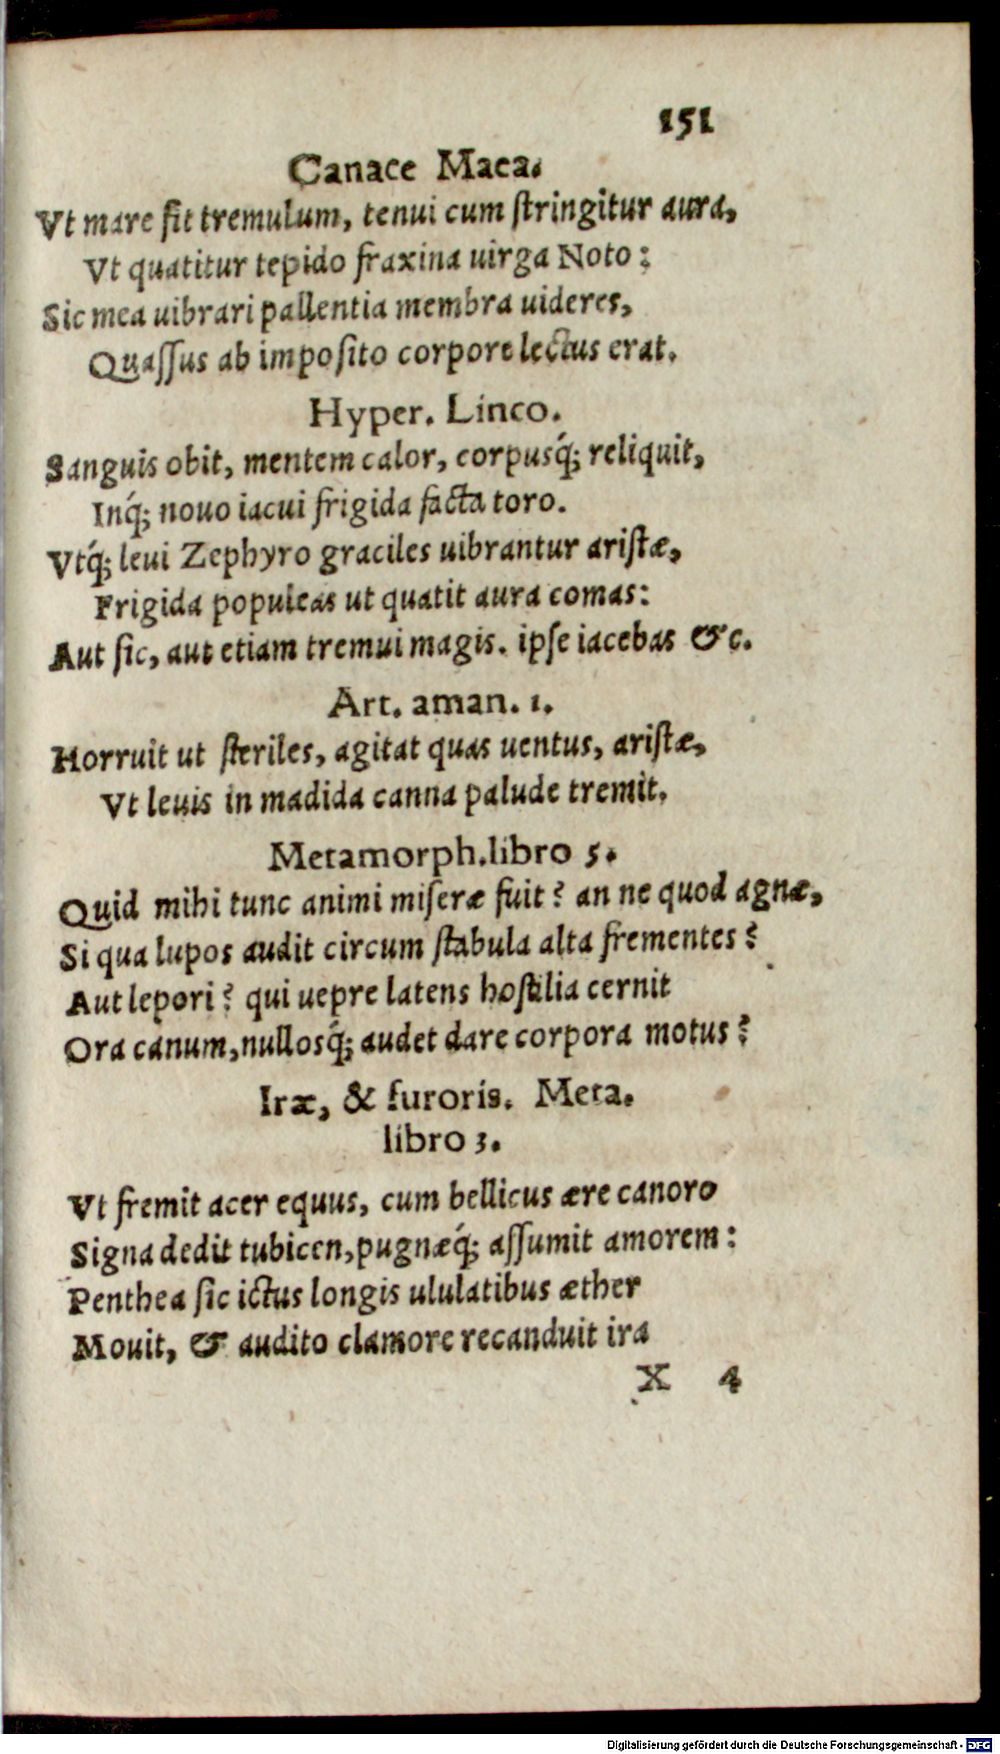 151
Canace Maca.
Vt mare fit tremulum, tenui cum ſtringitur aura,
Vt quatitur tepido fraxina uirga Noto:
Sic mea uibrari pallentia membra uideres,
Quaſſus ab impoſito corpore lectus erat.
Hyper. Linco.
Sanguis obit, mentem calor, corpusq́; reliquit,
Inq́; nouo iacui frigida facta toro.
Vtq́; leui Zephyro graciles uibrantur ariſtæ,
Frigida populeas ut quatit aura comas:
Aut ſic, aut etiam tremui magis. ipſe iacebas &c.
Art. aman. 1.
Horruit ut ſteriles, agitat quas uentus, ariſtæ,
Vt leuis in madida canna palude tremit.
Metamorph.libro 5.
Quid mihi tunc animi miſeræ fuit? an ne quod agnæ,
Si qua lupos audit circum ſtabula alta frementes?
Aut lepori? qui uepre latens hoſtilia cernit
Ora canum, nullosq́; audet dare corpora motus?
Iræ, & furoris. Meta.
libro 3.
Vt fremit acer equus, cum bellicus ære canoro
Signa dedit tubicen, pugnæq́; aſſumit amorem:
Penthea ſic ictus longis ululatibus æther
Mouit, & audito clamore recanduit ira
X 4
Digitalisierung gefördert durch die Deutsche Forschungsgemeinschaft - DFG